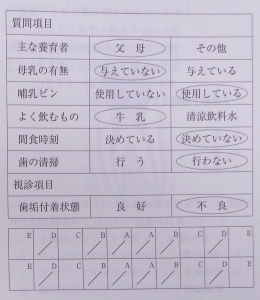 質問項目
主な養育者 父 母 その他
母乳の有無 与えていない 与えている
哺乳ビン 使用していない 使用している
よく飲むもの 牛 乳 清涼飲料水
間食時刻 決めている 決めていない
歯の清掃 行 う 行わない
視診項目
歯垢付着状態 良 好 不 良
E D C B A A B C D E
E D C B A A B C D E